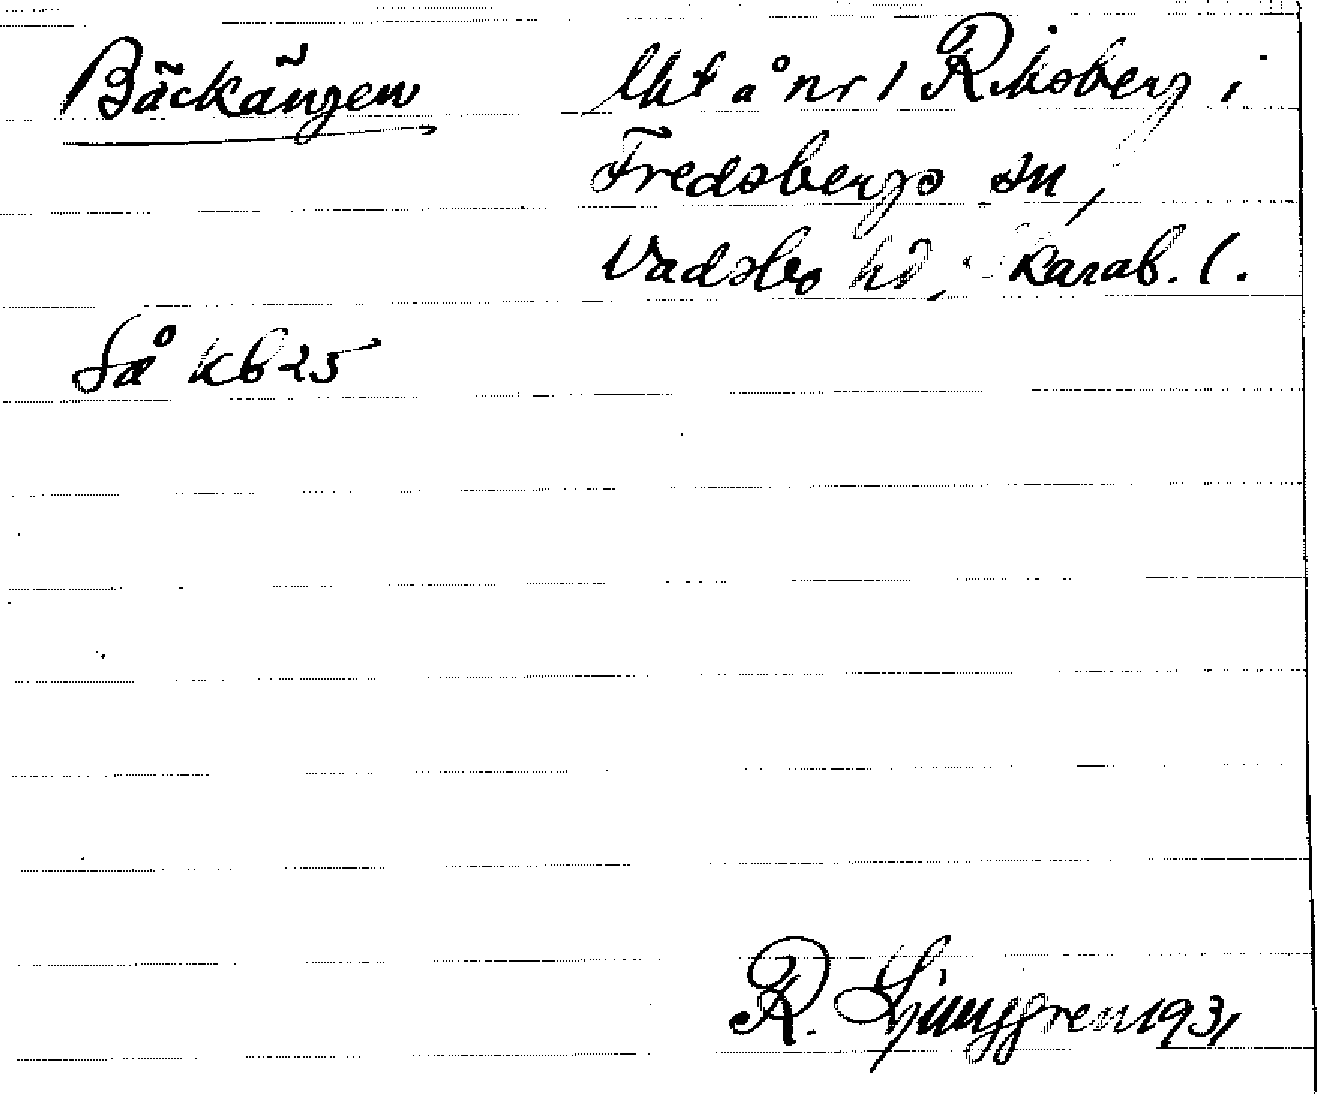 Bäckängen lht å nr 1 Riksberg i
Fredsbergs sn,
Vadsbo hd, Skarab. l.
Så kb 25
R. Ljunggren 1931